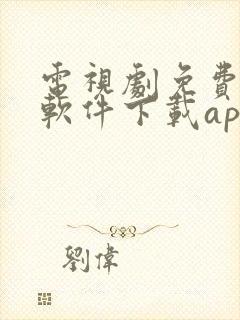 電視劇免費
軟件下載ap
劉偉